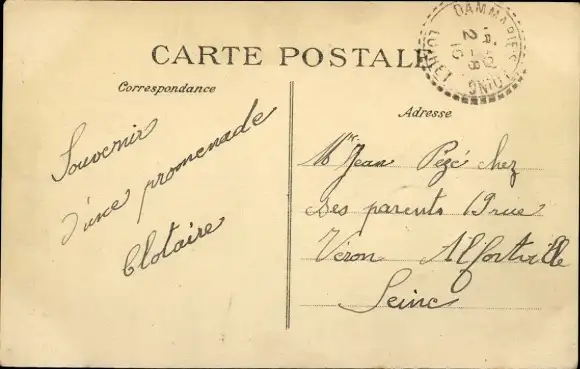 CARTE POSTALE
Correspondance
Adresse
DAMMARIE S
LOING
LOIRET
2 -8
Souvenir
d'une promenade
Clotaire
Mr Jean Pézé chez
ses parents 19 rue
Véron Alfortville
Seine